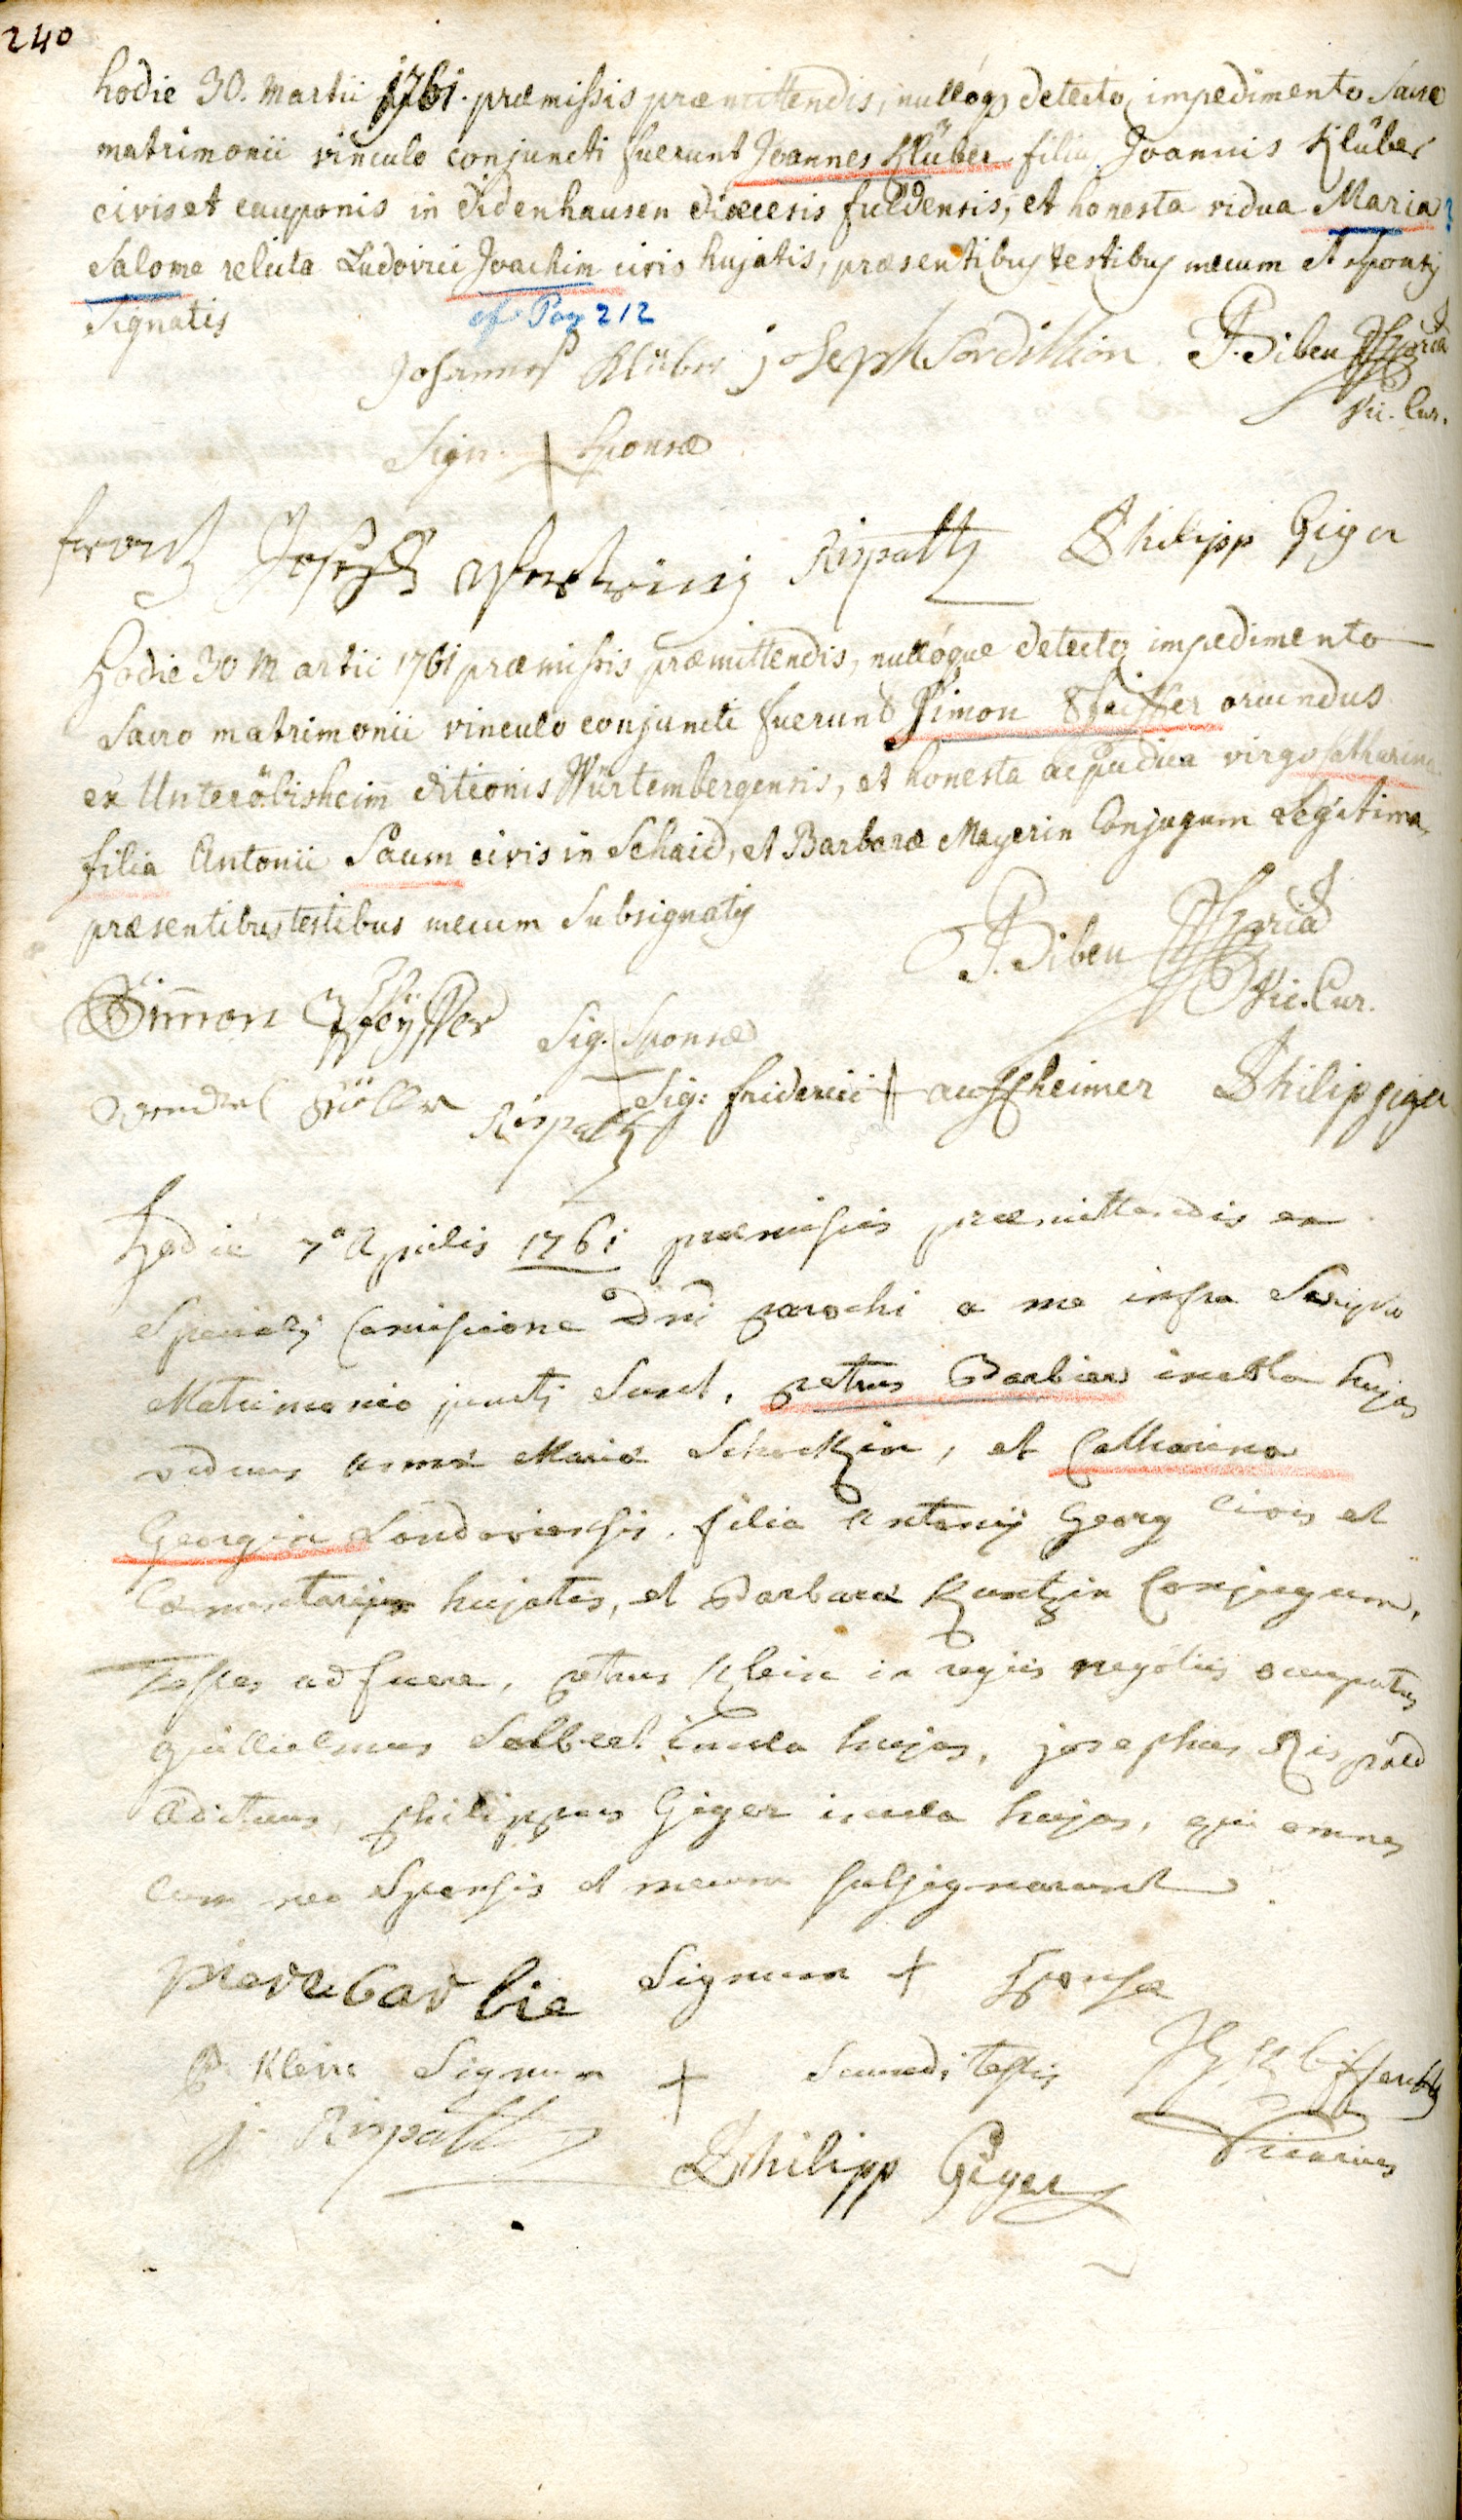 240
hodie 30. Martii 1761. præmissis præmittendis, nullóq detecto impedimento Sacro
matrimonii vinculo conjuncti fuerunt Joannes Klüber filius Joannis Klüber
civis et cauponis in didenhausen diœcesis fuldensis, et honesta vidua Maria ?
Salome relicta Ludovici Joachim civis hujatis, præsentibus testibus mecum et sponsis
Signatis
cf. Pag 212
Johannes Klüber joseph Sordillion P. Biben Vic. Cur.
Sign. + Sponsæ
frantz Joseph Rispaltt Philipp Giger
Hodie 30 Martii 1761 præmissis præmittendis, nullóque detecto impedimento
Sacro matrimonii vinculo conjuncti fuerunt Simon Pfeiffer oriundus
ex Unteröbisheim ditionis Würtembergensis, et honesta ac pudica virgo catharina
filia Antonii Paum civis in Schaid, et Barbaræ Mayerin Conjugum Legitima,
præsentibus testibus mecum Subsignatis
P. Biben
Vic. Cur.
Simon Pfeyffer Sig. Sponsæ
Sig: friderici + auffheimer Philipp giger
Rispaltt
Hodie 7ª Aprilis 1761 præmissis præmittendis ex
Speciali Comissione Dni parochi a me infra Scripto
Matrimonio juncti Sunt, petrus Barbier incola hujas
viduus annæ Mariæ Schockin, et Catharina
Georgin Landaviensis. filia Antonij Georg Civis et
Cœmentarij hujatis, et Barbaræ Kuntzin Conjugum,
Testes adfuere, petrus Klein in regiis negotiis occupatus
guillielmus Salbert incola hujas, josephus Rispald
Ædituus philippus Giger incola hujas, qui omnes
cum neo Sponsis et mecum subsignarunt
pierre barbie Signum + sponsæ
P Klein Signum + Secundi testis
j. Rispalt Philipp Giger Vicarius